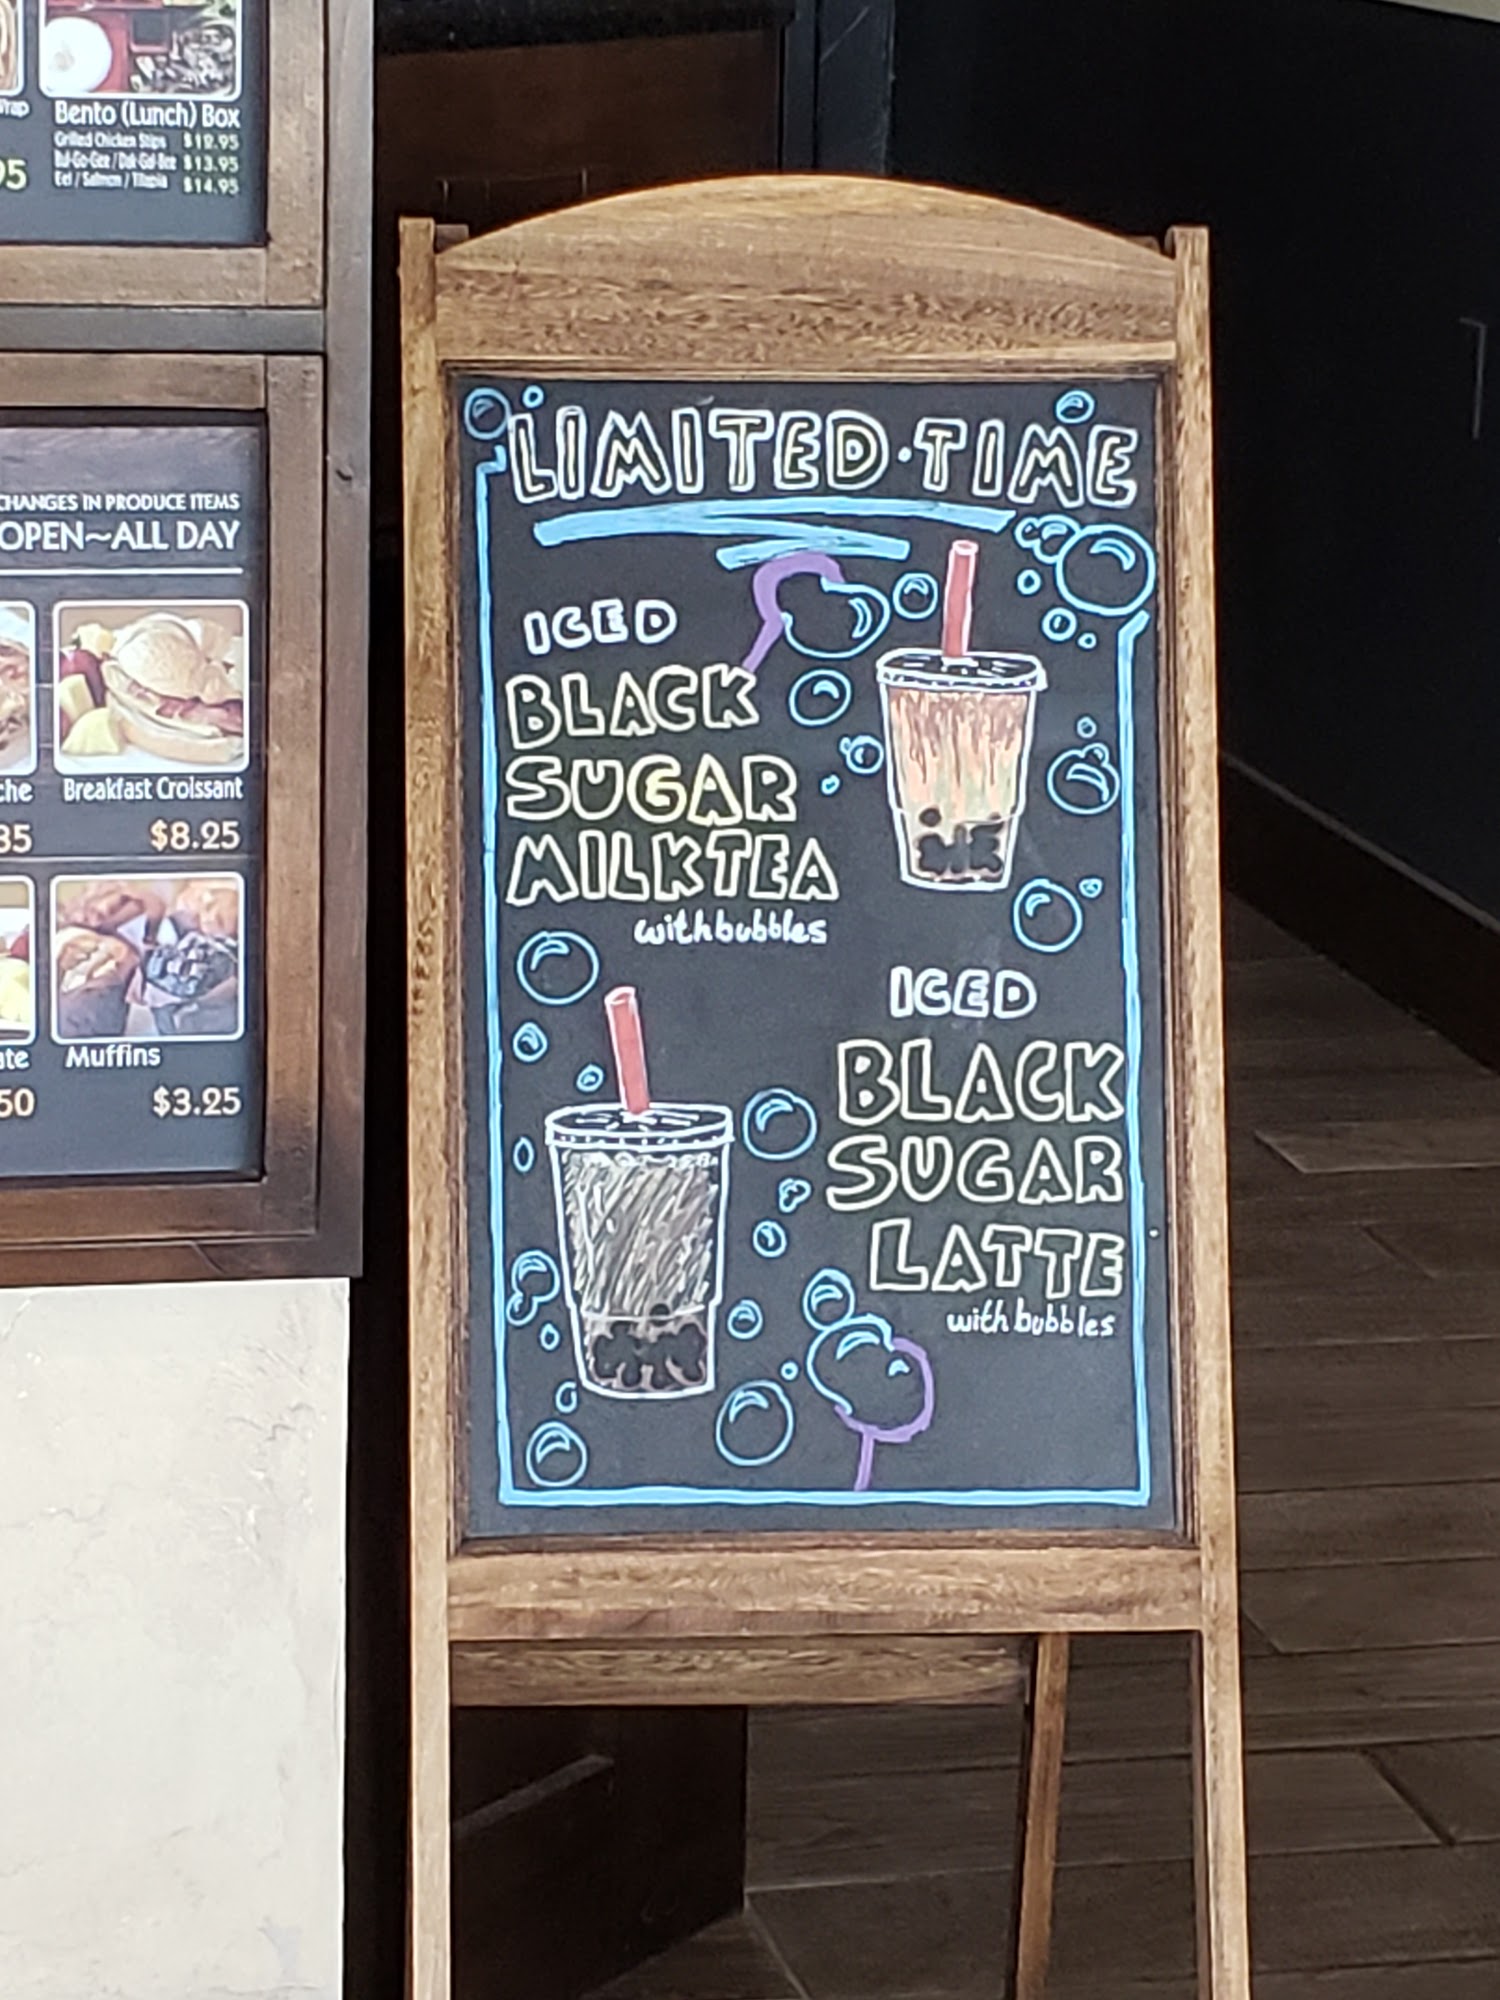 Wrap
95
Bento (Lunch) Box
Grilled Chicken Stips $12.95
Bul-Go-Gee / Dak-Gal-Bee $13.95
Eel / Salmon / Tilapia $14.95
CHANGES IN PRODUCE ITEMS
OPEN~ALL DAY
che
35
Breakfast Croissant
$8.25
ate
50
Muffins
$3.25
LIMITED·TIME
ICED
BLACK
SUGAR
MILK TEA
with bubbles
ICED
BLACK
SUGAR
LATTE
with bubbles